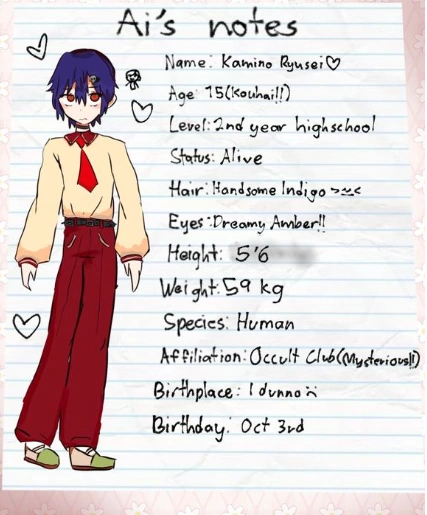 Ai's notes
Name: Kamino Ryusei♡
Age: 15(Kouhai!!)
Level: 2nd year highschool
Status: Alive
Hair: Handsome Indigo >~<
Eyes: Dreamy Amber!!
Height: 5'6
Weight: 59 kg
Species: Human
Affiliation: Occult Club(Mysterious!!)
Birthplace: I dunno :(
Birthday: Oct 3rd